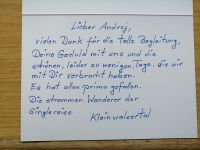 Lieber Andrej,
vielen Dank für die tolle Begleitung,
Deine Geduld mit uns und die
schönen, leider zu wenigen Tage, die wir
mit Dir verbracht haben.
Es hat allen prima gefallen.
Die strammen Wanderer der
Singlereise Kleinwalsertal